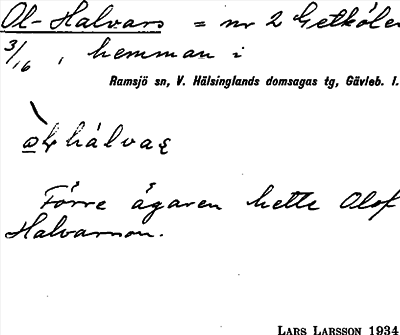 Ol-Halvars = nr 2 Getkölen
3/16, hemman i
Ramsjö sn, V. Hälsinglands domsagas tg, Gävleb. l.
hálvaʂ
Förre ägaren hette Olof
Halvarsson.
LARS LARSSON 1934